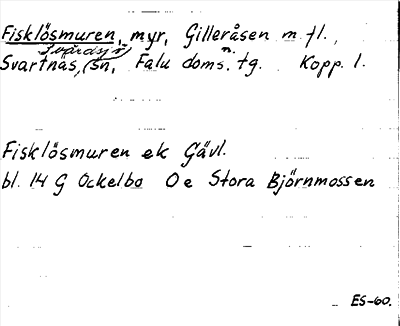 Fisklösmuren, myr, Gilleråsen m. fl.,
Svärdsjö
Svartnäs, sn, Falu doms. n. tg. Kopp. l.
Fisklösmuren ek Gävl.
bl. 14 G Ockelbo 0 e Stora Björnmossen
ES-60.